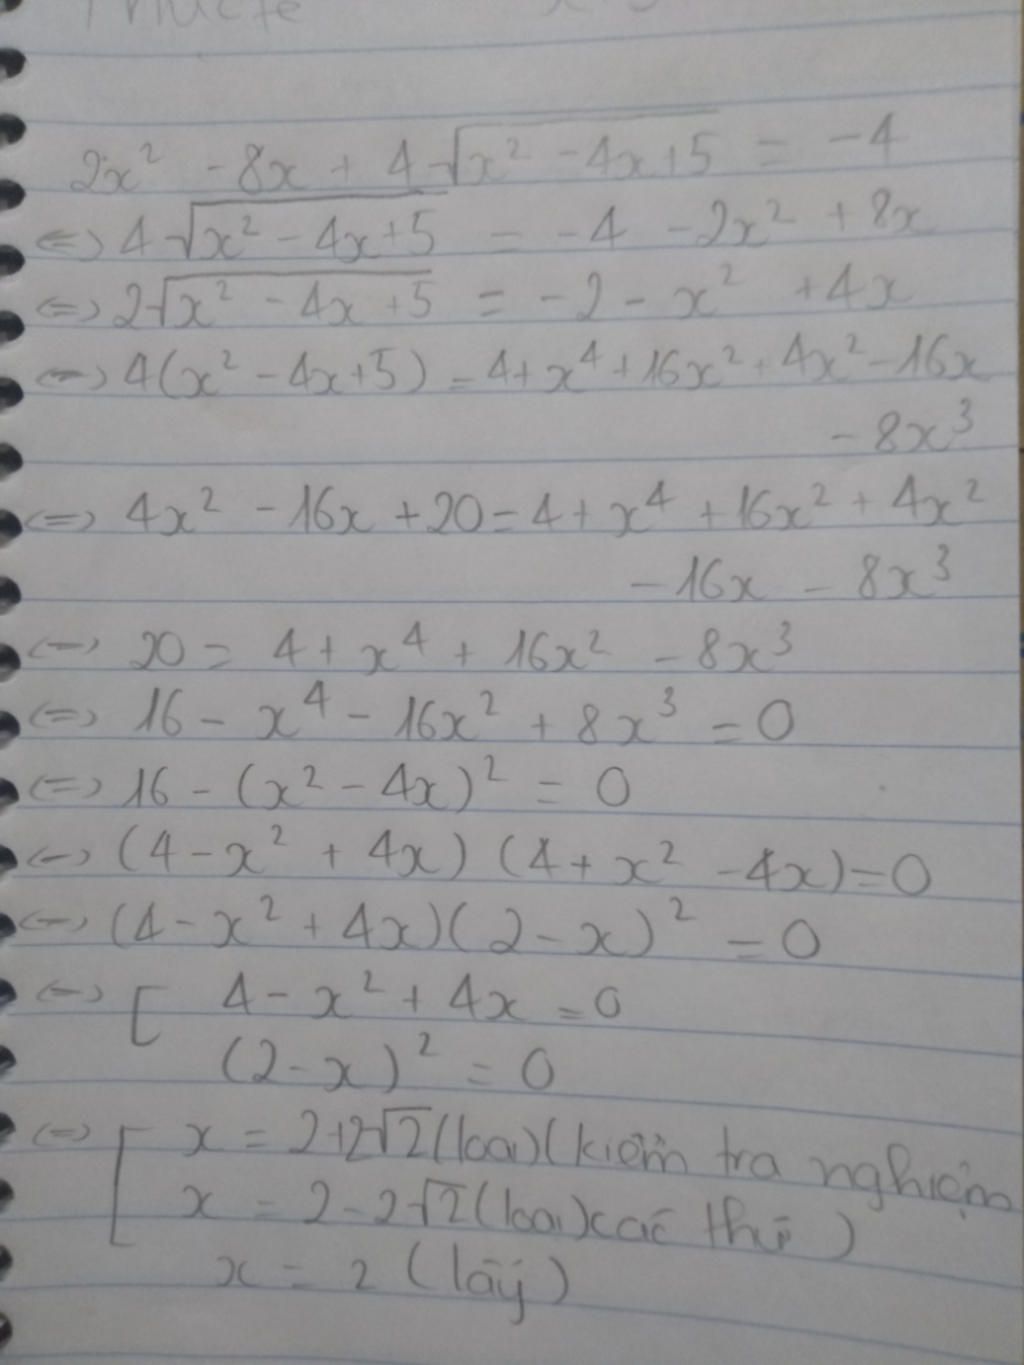 2x² - 8x + 4√(x² - 4x + 5) = -4
⇔ 4√(x² - 4x + 5) = -4 - 2x² + 8x
⇔ 2√(x² - 4x + 5) = -2 - x² + 4x
⇔ 4(x² - 4x + 5) = 4 + x⁴ + 16x² + 4x² - 16x
- 8x³
⇔ 4x² - 16x + 20 = 4 + x⁴ + 16x² + 4x²
- 16x - 8x³
⇔ 20 = 4 + x⁴ + 16x² - 8x³
⇔ 16 - x⁴ - 16x² + 8x³ = 0
⇔ 16 - (x² - 4x)² = 0
⇔ (4 - x² + 4x) (4 + x² - 4x) = 0
⇔ (4 - x² + 4x)(2 - x)² = 0
⇔ [ 4 - x² + 4x = 0
(2 - x)² = 0
⇔ [ x = 2 + 2√2 (loại) (kiểm tra nghiệm
x = 2 - 2√2 (loại) xác thử )
x = 2 (lấy)